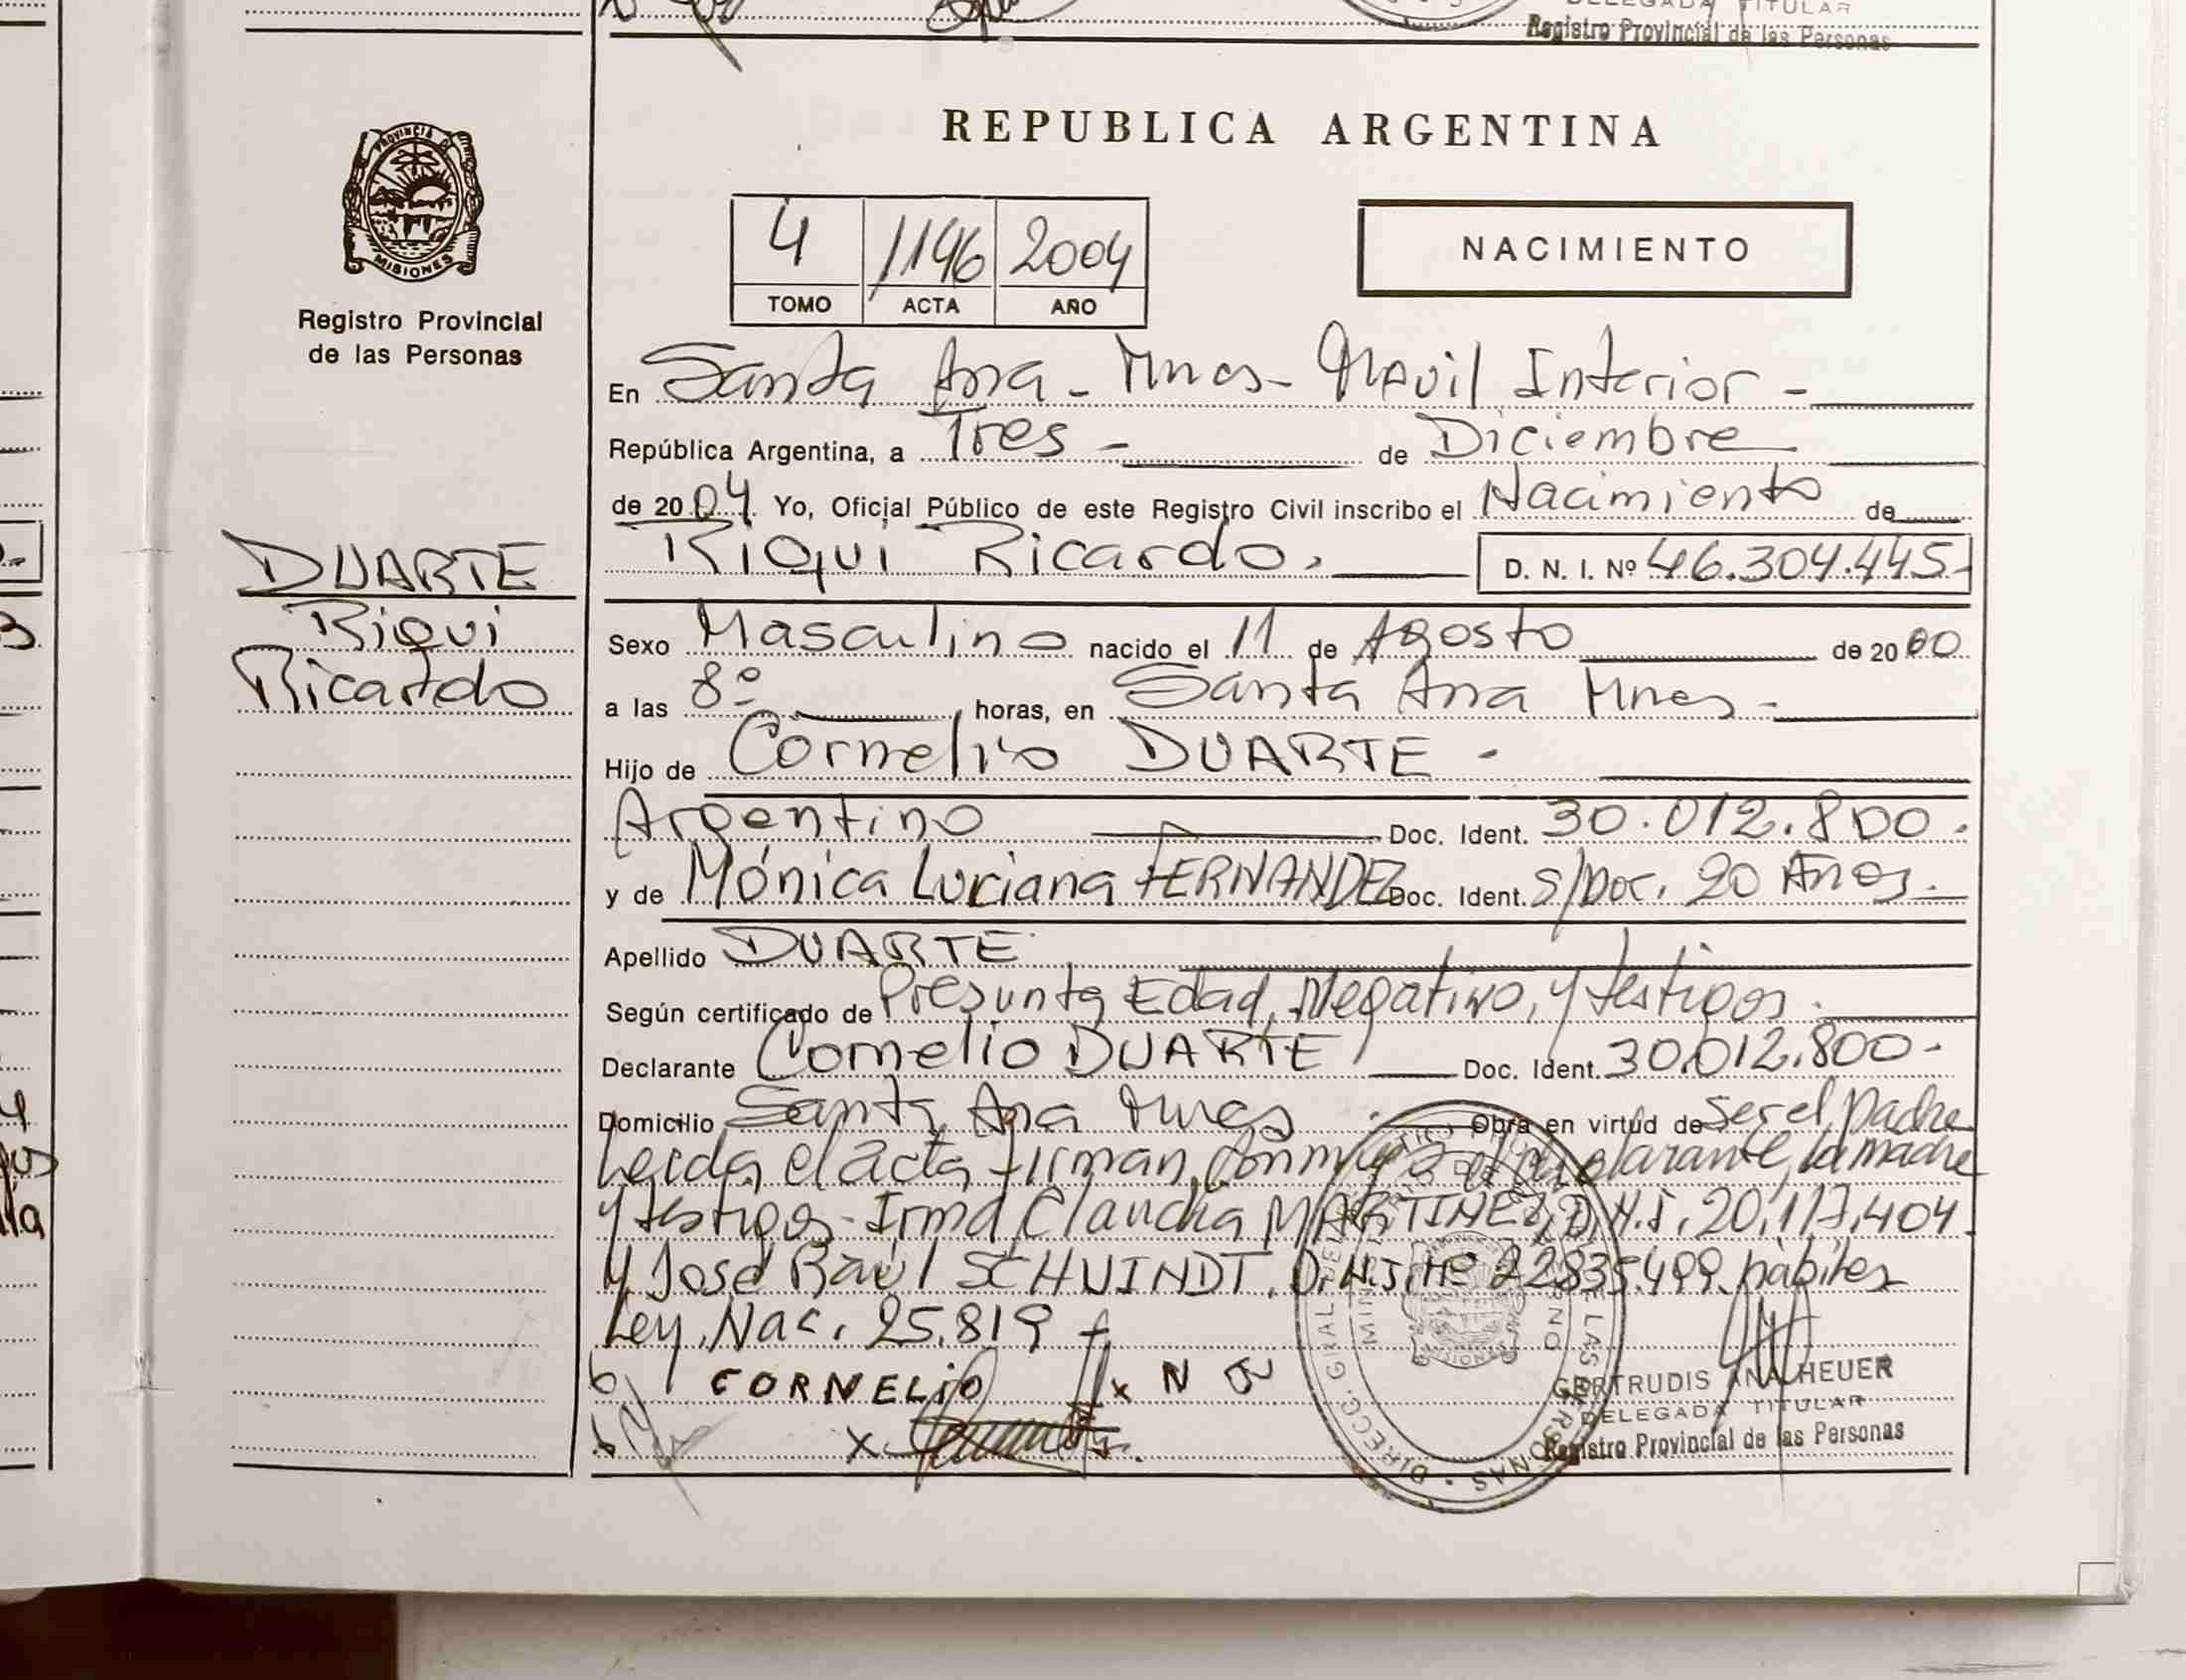 DELEGADA TITULAR
Registro Provincial de las Personas
PROVINCIA
MISIONES
Registro Provincial
de las Personas
DUARTE
Riqui
Ricardo
REPUBLICA ARGENTINA
4 1196 2004
TOMO ACTA AÑO
NACIMIENTO
En Santa Ana - Mnes - Movil Interior -
República Argentina, a Tres - de Diciembre
de 2004. Yo, Oficial Público de este Registro Civil inscribo el Nacimiento de
Riqui Ricardo. D. N. I. Nº 46.304.445-
Sexo Masculino nacido el 11 de Agosto de 2000
a las 8º horas, en Santa Ana Mnes -
Hijo de Cornelio DUARTE -
Argentino Doc. Ident. 30.012.800.
y de Mónica Luciana FERNANDEZ Doc. Ident. S/Doc. 20 Años.
Apellido DUARTE
Según certificado de Presunta Edad, Negativo, y testigos.
Declarante Cornelio DUARTE Doc. Ident. 30.012.800-
Domicilio Santa Ana Mnes Obra en virtud de ser el padre
Leida el acta firman conmigo el declarante, la madre
y testigos - Irma Claudia MARTINEZ, D.N.I. 20.117.404
y José Raúl SCHUINDT. D.N.I. Nº 22835.499 hábiles
Ley. Nac. 25.819
CORNELIO x N
x
GERTRUDIS ANA HEUER
DELEGADA TITULAR
Registro Provincial de las Personas